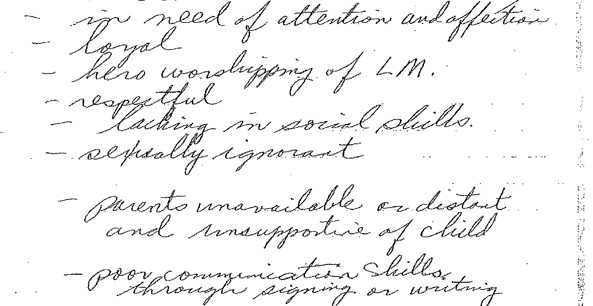 - in need of attention and affection
- loyal
- hero worshipping of LM.
- respectful
- lacking in social skills.
- sexually ignorant
- parents unavailable or distant
and unsupportive of child
- poor communication skills
through signing or writing